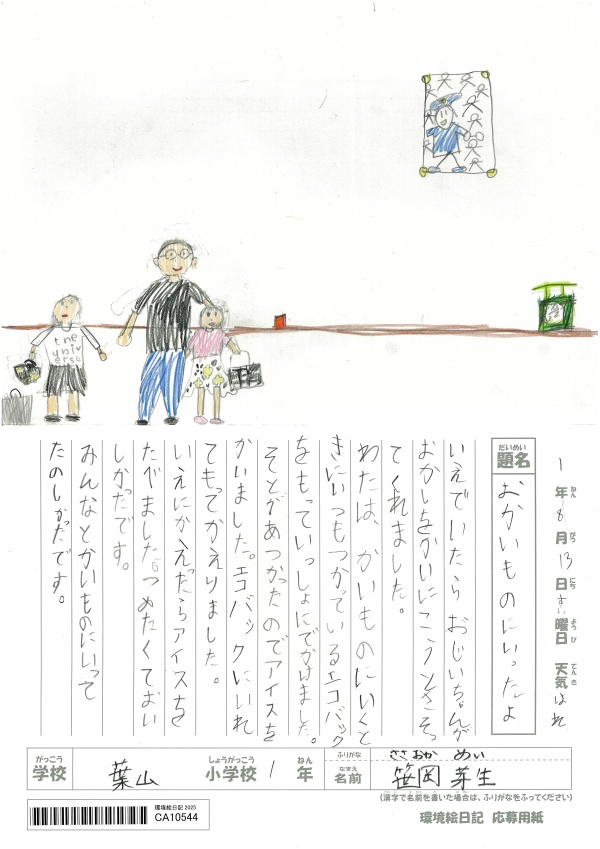 the
univ
erse
1年8月13日すい曜日 天気はれ
ねん がつ にち ようび てんき
だいめい
題名
おかいものにいったよ
いえでいたらおじいちゃんが
おかしをかいにこうとさそっ
てくれました。
わたは、かいものにいくと
きにいつもつかっているエコバック
をもっていっしょにでかけました。
そとがあつかったのでアイスを
かいました。エコバックにいれ
てもってかえりました。
いえにかえったらアイスを
たべました。つめたくておい
しかったです。
みんなとかいものにいって
たのしかったです。
がっこう しょうがっこう ねん ふりがな ささおか めい
学校 葉山 小学校 1年 なまえ 名前 笹岡 芽生
(漢字で名前を書いた場合は、ふりがなをふってください)
環境絵日記 2025
CA10544
環境絵日記 応募用紙